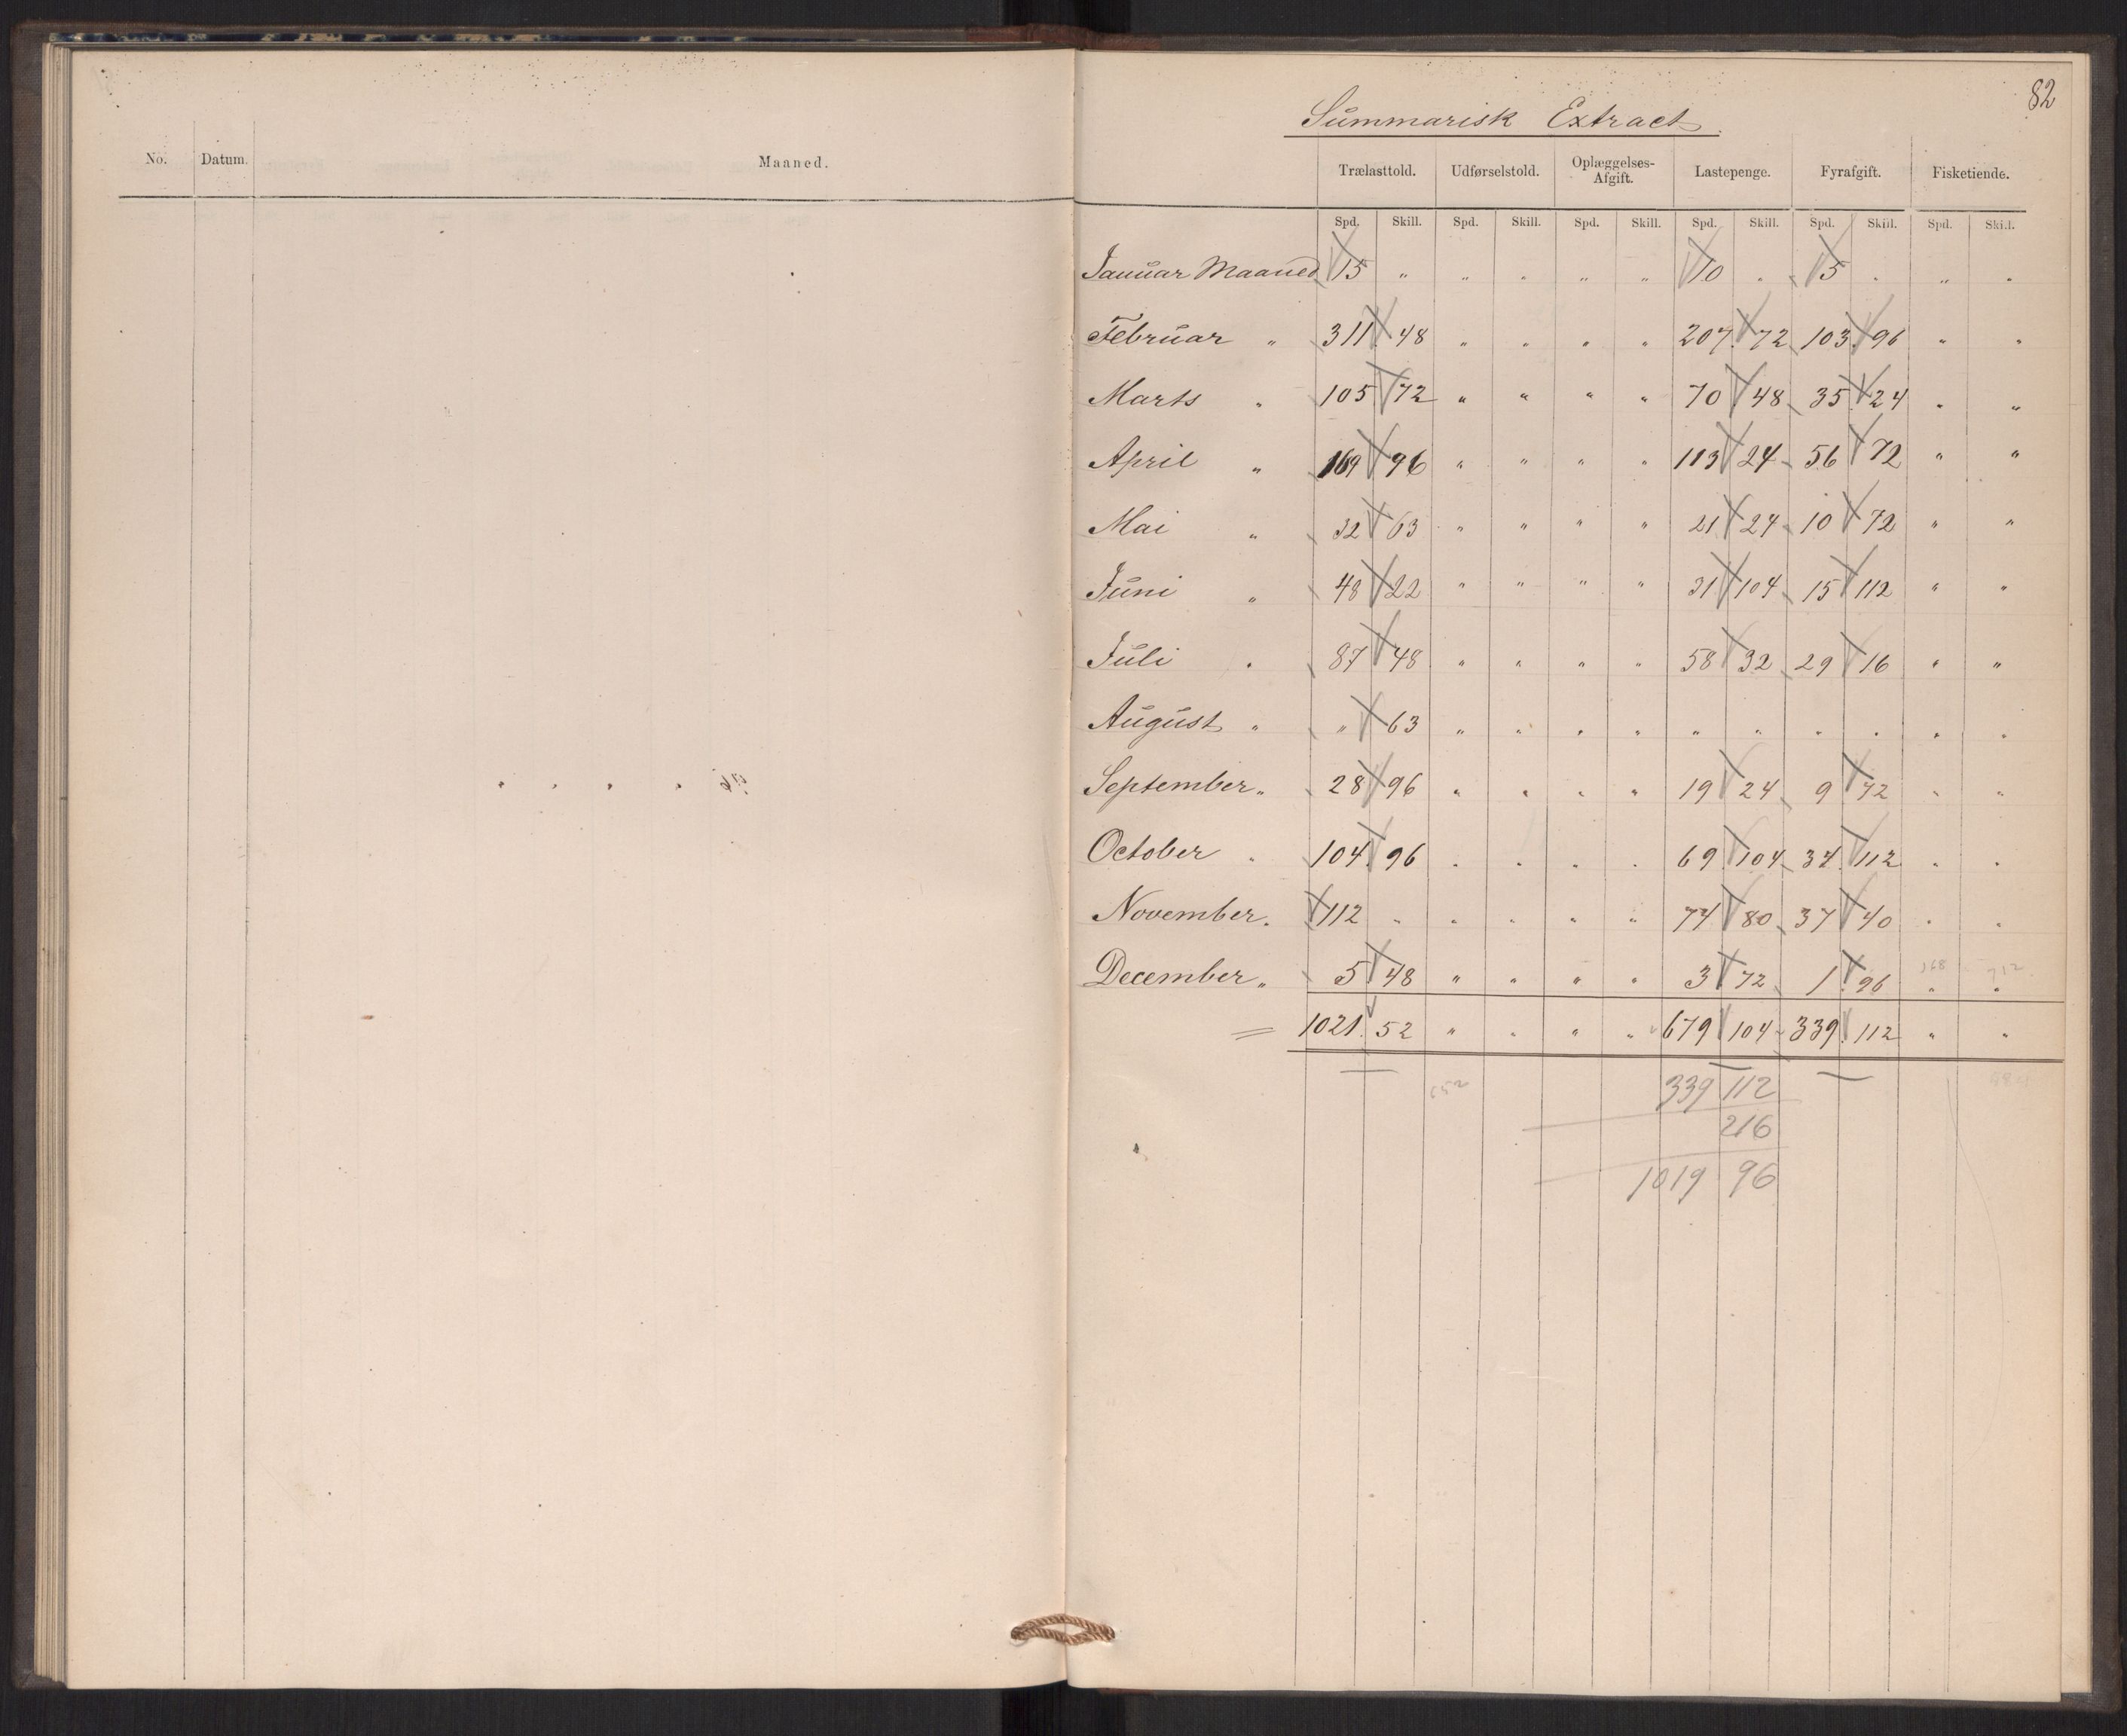 82
Summarisk Extract.
No. Datum. Maaned.
Trælasttold. Udførselstold. Oplæggelses-Afgift. Lastepenge. Fyrafgift. Fisketiende.
Spd. Skill. Spd. Skill. Spd. Skill. Spd. Skill. Spd. Skill. Spd. Skill.
Januar Maaned 15 " " " " " 10 " 5 " " "
Februar " 311 48 " " " " 207 72 103 96 " "
Marts " 105 72 " " " " 70 48 35 24 " "
April " 169 96 " " " " 113 24 56 72 " "
Mai " 32 63 " " " " 21 24 10 72 " "
Juni " 48 22 " " " " 31 104 15 112 " "
Juli " 87 48 " " " " 58 32 29 16 " "
August " " 63 " " " " " " " " " "
September " 28 96 " " " " 19 24 9 72 " "
October " 104 96 " " " " 69 104 34 112 " "
November " 112 " " " " " 74 80 37 40 " "
December " 5 48 " " " " 3 72 1 96 " "
= 1021 52 " " " " 679 104 339 112 " "
339 112
216
1019 96